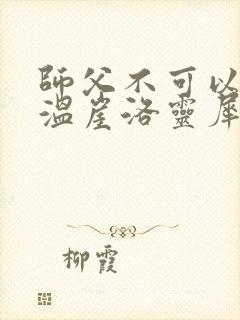 師父不可以
溫崖洛靈犀
柳霞